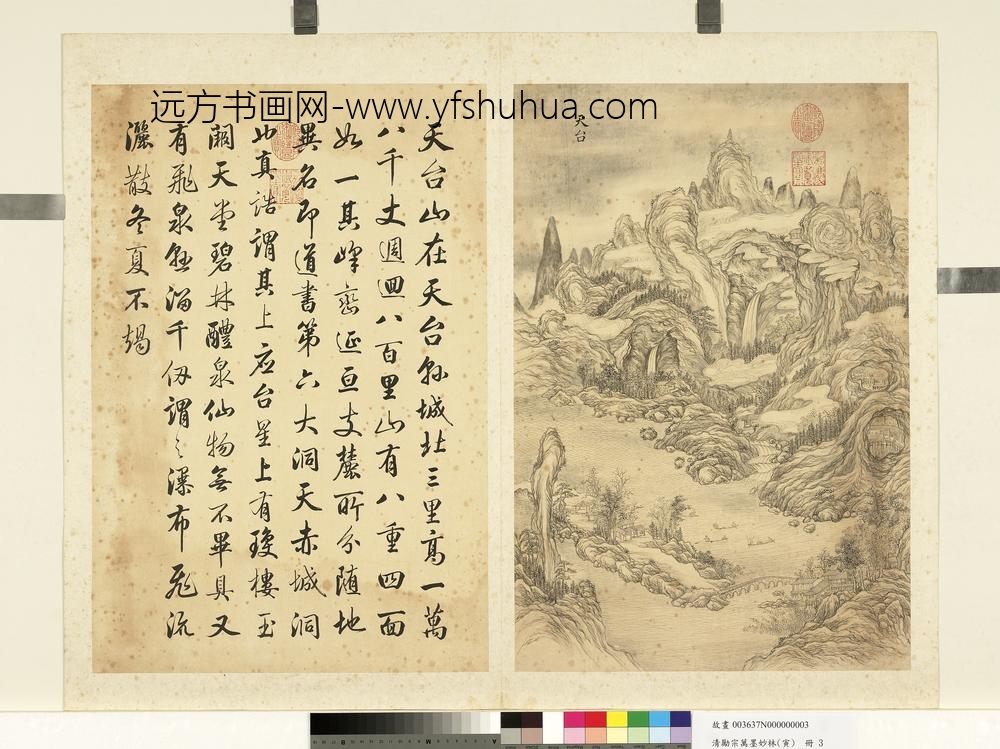 远方书画网-www.yfshuhua.com
天台
天台山在天台縣城北三里高一萬
八千丈週迴八百里山有八重四面
如一其峰巒延亘支麓所分隨地
異名即道書第六大洞天赤城洞
也真誥謂其上應台星上有瓊樓玉
闕天堂碧林醴泉仙物無不畢具又
有飛泉懸溜千仞謂之瀑布飛流
灑散冬夏不竭
故畫 003637N000000003
清勵宗萬墨妙林(寅) 冊 3